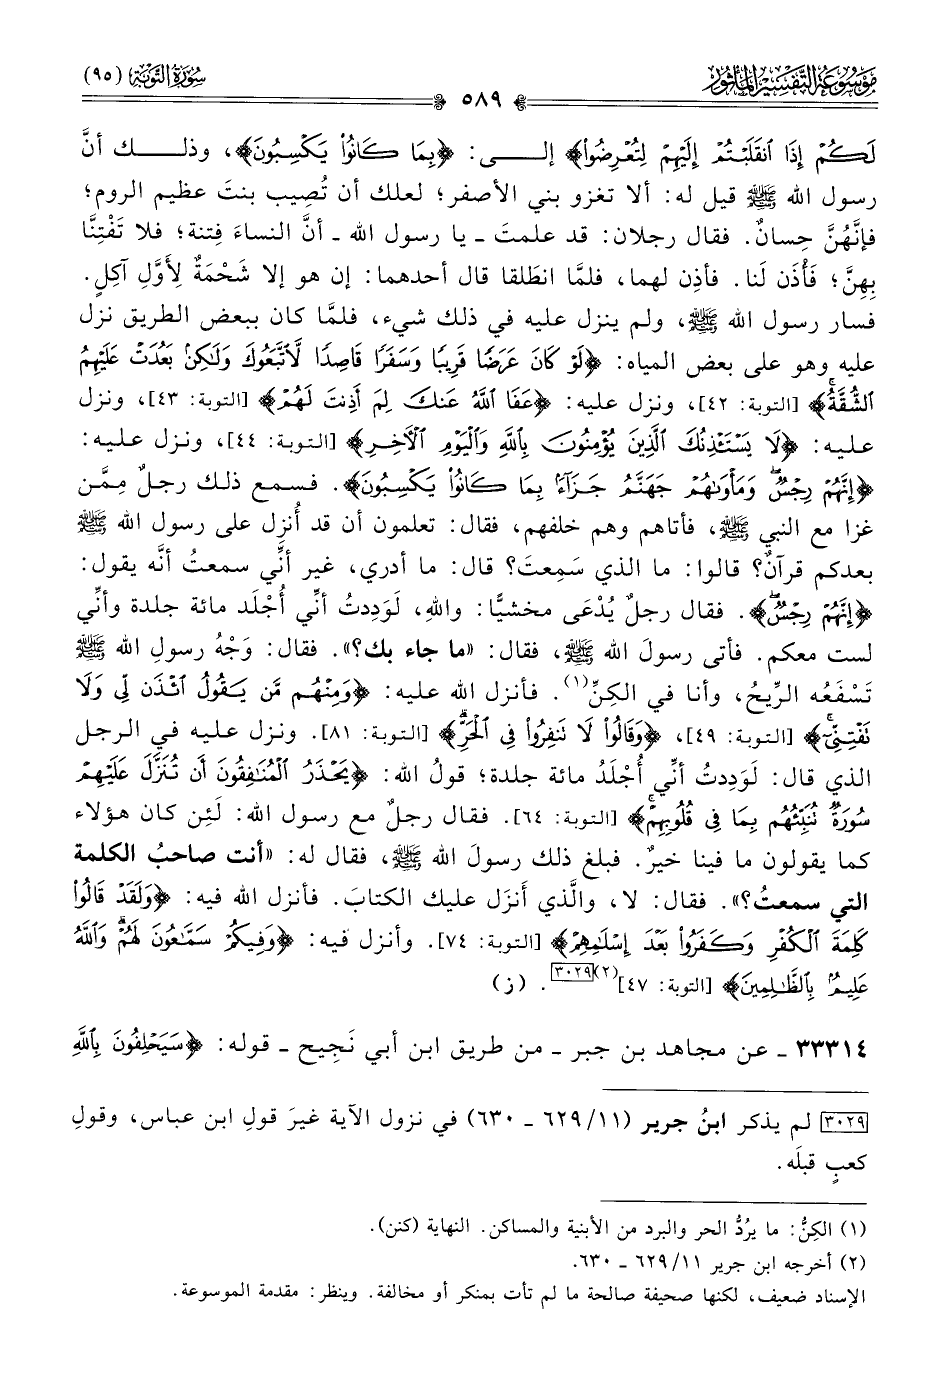 مَوْسُوعَة التَّفْسِير المَأْثُور
٥٨٩
سُورَةُ التَّوْبَةِ (٩٥)
لَكُمْ إِذَا ٱنقَلَبْتُمْ إِلَيْهِمْ لِتُعْرِضُوا۟﴾ إلــى: ﴿بِمَا كَانُوا۟ يَكْسِبُونَ﴾، وذلــك أنَّ
رسول الله ﷺ قيل له: ألا تغزو بني الأصفر؛ لعلك أن تُصِيب بنتَ عظيم الروم؛
فإنَّهُنَّ حِسانٌ. فقال رجلان: قد علمتَ ـ يا رسول الله ـ أنَّ النساءَ فِتنة؛ فلا تَفْتِنَّا
بِهِنَّ؛ فَأْذَن لَنا. فأذِن لهما، فلمَّا انطَلقا قال أحدهما: إن هو إلا شَحْمَةٌ لِأوَّلِ آكِلٍ.
فسار رسول الله ﷺ، ولم ينزل عليه في ذلك شيء، فلمَّا كان ببعض الطريق نزل
عليه وهو على بعض المياه: ﴿لَوْ كَانَ عَرَضًا قَرِيبًا وَسَفَرًا قَاصِدًا لَّٱتَّبَعُوكَ وَلَـٰكِنۢ بَعُدَتْ عَلَيْهِمُ
ٱلشُّقَّةُ﴾ [التوبة: ٤٢]، ونزل عليه: ﴿عَفَا ٱللَّهُ عَنكَ لِمَ أَذِنتَ لَهُمْ﴾ [التوبة: ٤٣]، ونزل
عليه: ﴿لَا يَسْتَـْٔذِنُكَ ٱلَّذِينَ يُؤْمِنُونَ بِٱللَّهِ وَٱلْيَوْمِ ٱلْـَٔاخِرِ﴾ [التوبة: ٤٤]، ونزل عليه:
﴿إِنَّهُمْ رِجْسٌ ۖ وَمَأْوَىٰهُمْ جَهَنَّمُ جَزَآءًۢ بِمَا كَانُوا۟ يَكْسِبُونَ﴾. فسمع ذلك رجلٌ مِمَّن
غزا مع النبي ﷺ، فأتاهم وهم خلفهم، فقال: تعلمون أن قد أُنزِل على رسول الله ﷺ
بعدكم قرآنٌ؟ قالوا: ما الذي سَمِعتَ؟ قال: ما أدري، غير أنِّي سمعتُ أنَّه يقول:
﴿إِنَّهُمْ رِجْسٌ﴾. فقال رجلٌ يُدْعَى مخشيًّا: واللهِ، لَوَدِدتُ أنِّي أُجْلَد مائة جلدة وأنِّي
لست معكم. فأتى رسولَ الله ﷺ، فقال: «ما جاء بك؟». فقال: وَجْهُ رسولِ الله ﷺ
تَسْفَعُه الرِّيحُ، وأنا في الكِنِّ(١). فأنزل الله عليه: ﴿وَمِنْهُم مَّن يَقُولُ ٱئْذَن لِّى وَلَا
تَفْتِنِّىٓ﴾ [التوبة: ٤٩]، ﴿وَقَالُوا۟ لَا تَنفِرُوا۟ فِى ٱلْحَرِّ﴾ [التوبة: ٨١]. ونزل عليه في الرجل
الذي قال: لَوَدِدتُ أنِّي أُجْلَدُ مائة جلدة؛ قولُ الله: ﴿يَحْذَرُ ٱلْمُنَـٰفِقُونَ أَن تُنَزَّلَ عَلَيْهِمْ
سُورَةٌ تُنَبِّئُهُم بِمَا فِى قُلُوبِهِمْ﴾ [التوبة: ٦٤]. فقال رجلٌ مع رسول الله: لَئِن كان هؤلاء
كما يقولون ما فينا خيرٌ. فبلغ ذلك رسولَ الله ﷺ، فقال له: «أنت صاحبُ الكلمة
التي سمعتُ؟». فقال: لا، والَّذي أنزَل عليك الكتابَ. فأنزل الله فيه: ﴿وَلَقَدْ قَالُوا۟
كَلِمَةَ ٱلْكُفْرِ وَكَفَرُوا۟ بَعْدَ إِسْلَـٰمِهِمْ﴾ [التوبة: ٧٤]. وأنزل فيه: ﴿وَفِيكُمْ سَمَّـٰعُونَ لَهُمْ ۗ وَٱللَّهُ
عَلِيمٌۢ بِٱلظَّـٰلِمِينَ﴾ [التوبة: ٤٧](٢)[٣٠٢٩]. (ز)
٣٣٣١٤ ـ عن مجاهد بن جبر ـ من طريق ابن أبي نَجِيح ـ قوله: ﴿سَيَحْلِفُونَ بِٱللَّهِ
[٣٠٢٩] لم يذكر ابنُ جرير (٦٢٩/١١ ـ ٦٣٠) في نزول الآية غيرَ قولِ ابن عباس، وقولِ
كعبٍ قبلَه.
(١) الكِنُّ: ما يرُدُّ الحر والبرد من الأبنية والمساكن. النهاية (كنن).
(٢) أخرجه ابن جرير ٦٢٩/١١ ـ ٦٣٠.
الإسناد ضعيف، لكنها صحيفة صالحة ما لم تأت بمنكر أو مخالفة. وينظر: مقدمة الموسوعة.